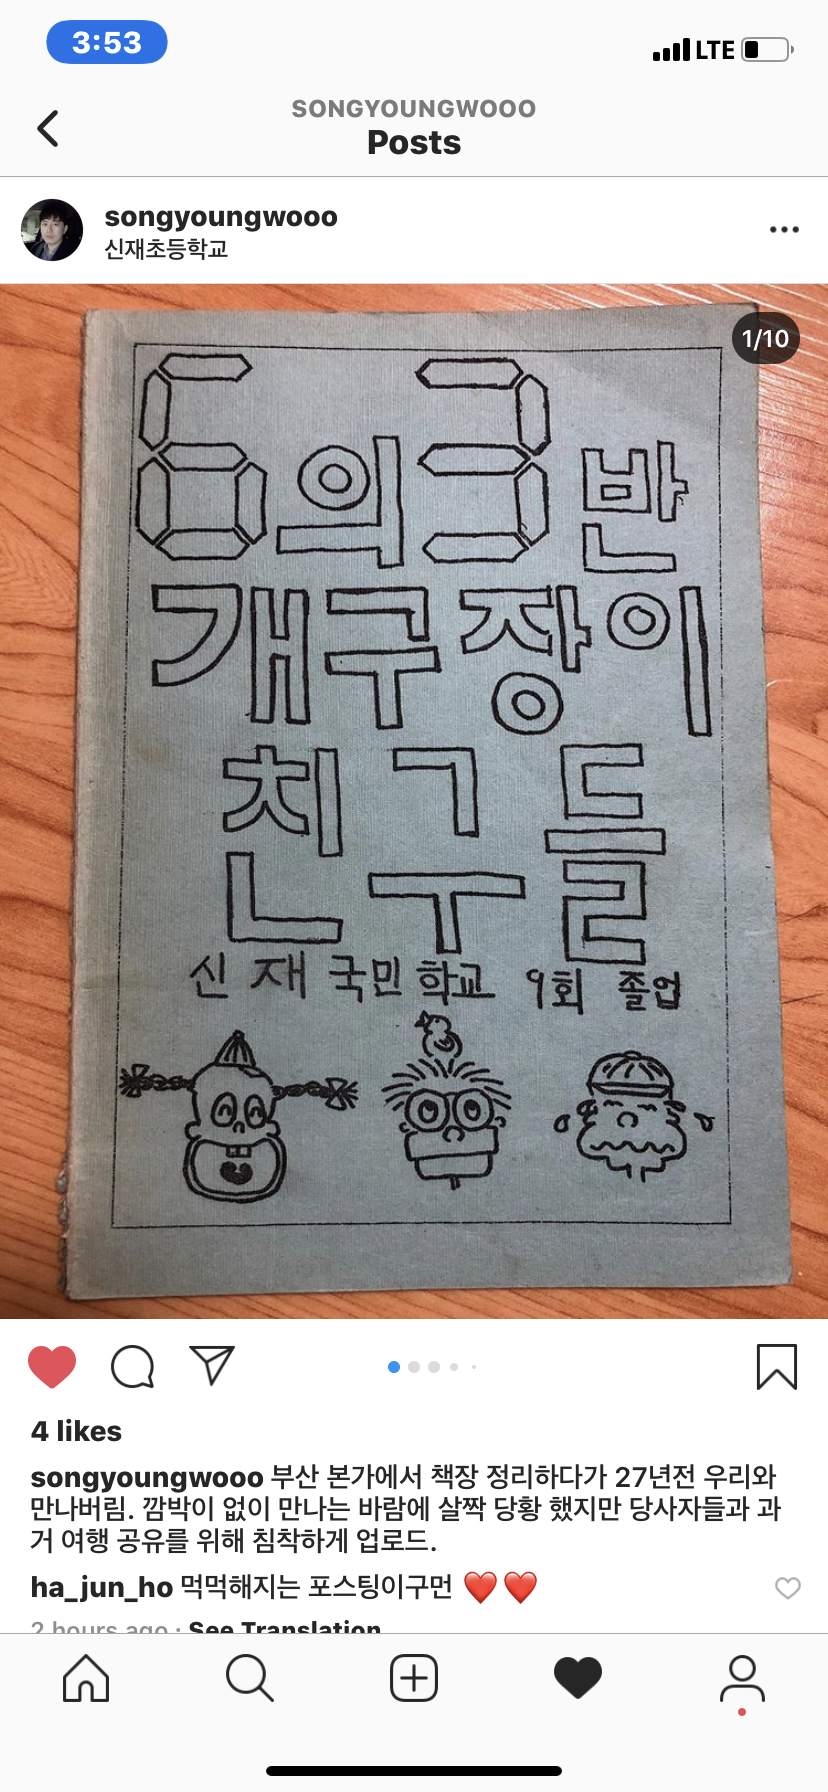 3:53
LTE
SONGYOUNGWOOO
Posts
songyoungwooo
신재초등학교
1/10
6의 3반
개구장이
친구들
신재국민학교 9회 졸업
4 likes
songyoungwooo 부산 본가에서 책장 정리하다가 27년전 우리와
만나버림. 깜박이 없이 만나는 바람에 살짝 당황 했지만 당사자들과 과
거 여행 공유를 위해 침착하게 업로드.
ha_jun_ho 먹먹해지는 포스팅이구먼 ❤️❤️
2 hours ago · See Translation